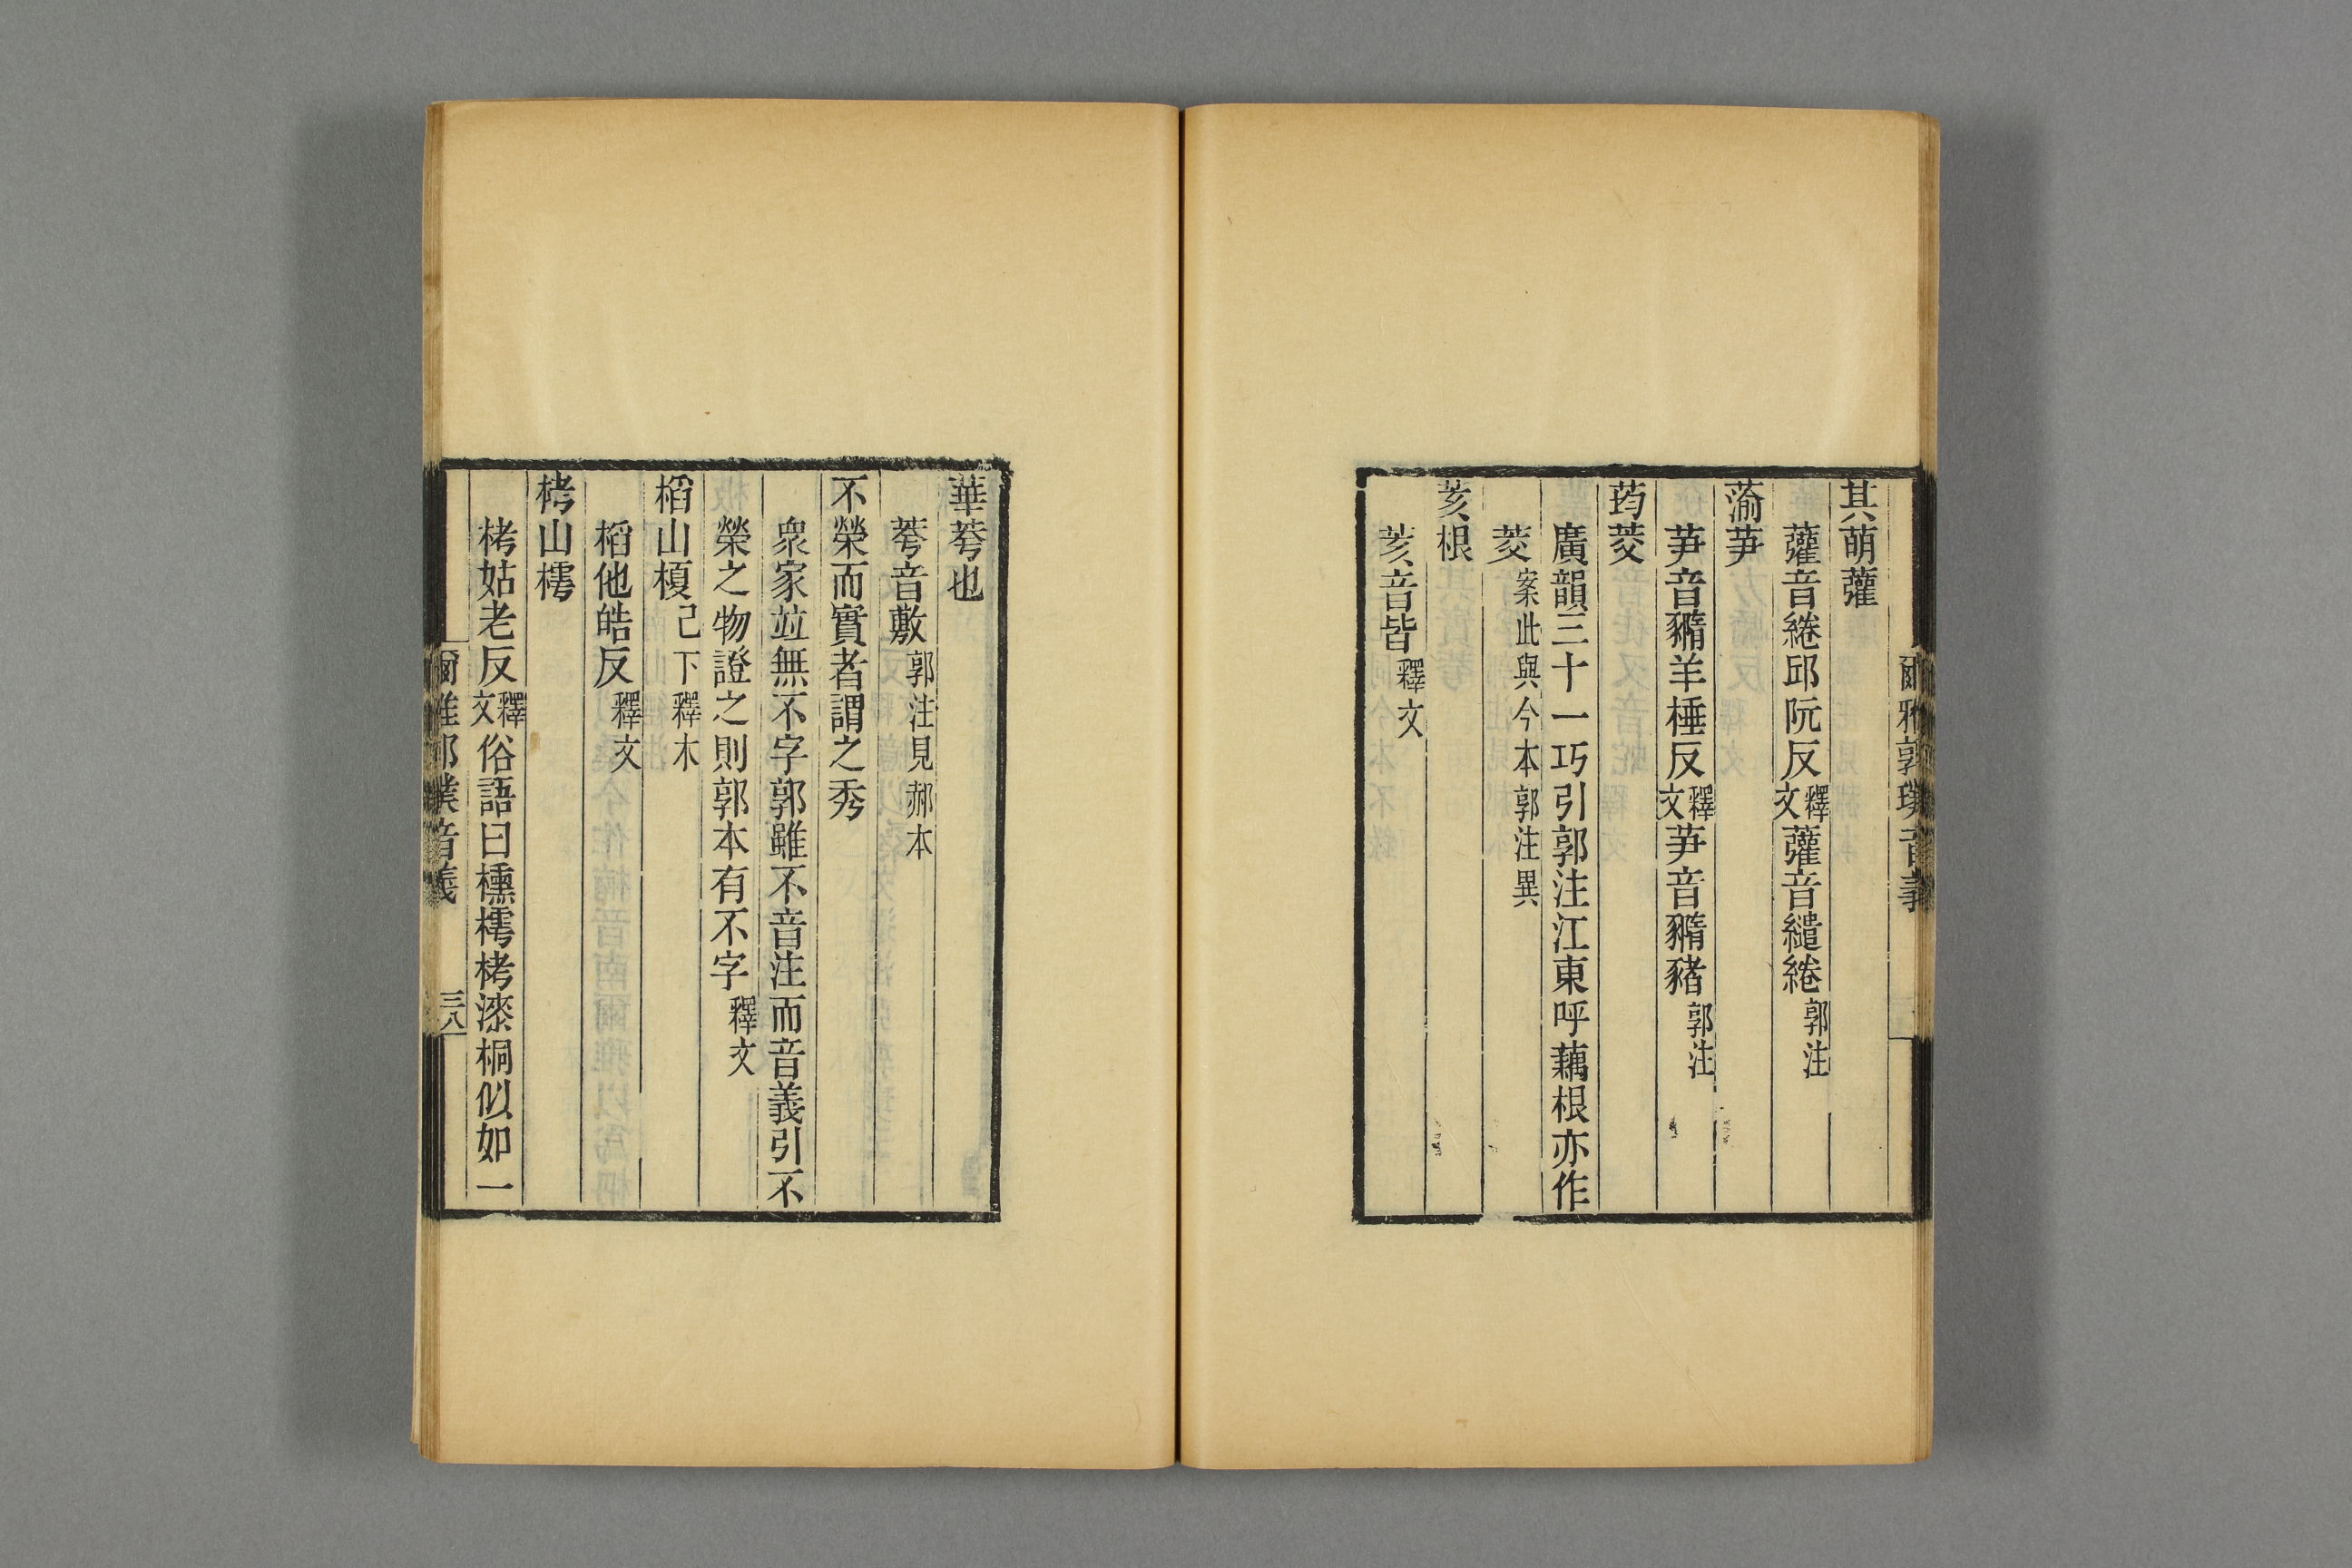 爾雅郭璞音義
其萌虇
虇音綣邱阮反釋文虇音繾綣郭注
蕍芛
芛音豬羊棰反釋文芛音豬豬郭注
荺茭
廣韻三十一巧引郭注江東呼藕根亦作
茭案此與今本郭注異
荄根
荄音皆釋文
華荂也
荂音敷郭注見郝本
不榮而實者謂之秀
衆家竝無不字郭雖不音注而音義引不
榮之物證之則郭本有不字釋文
槄山榎己下釋木
槄他皓反釋文
栲山樗
栲姑老反釋文俗語曰櫄樗栲漆相似如一
爾雅郭璞音義
三八